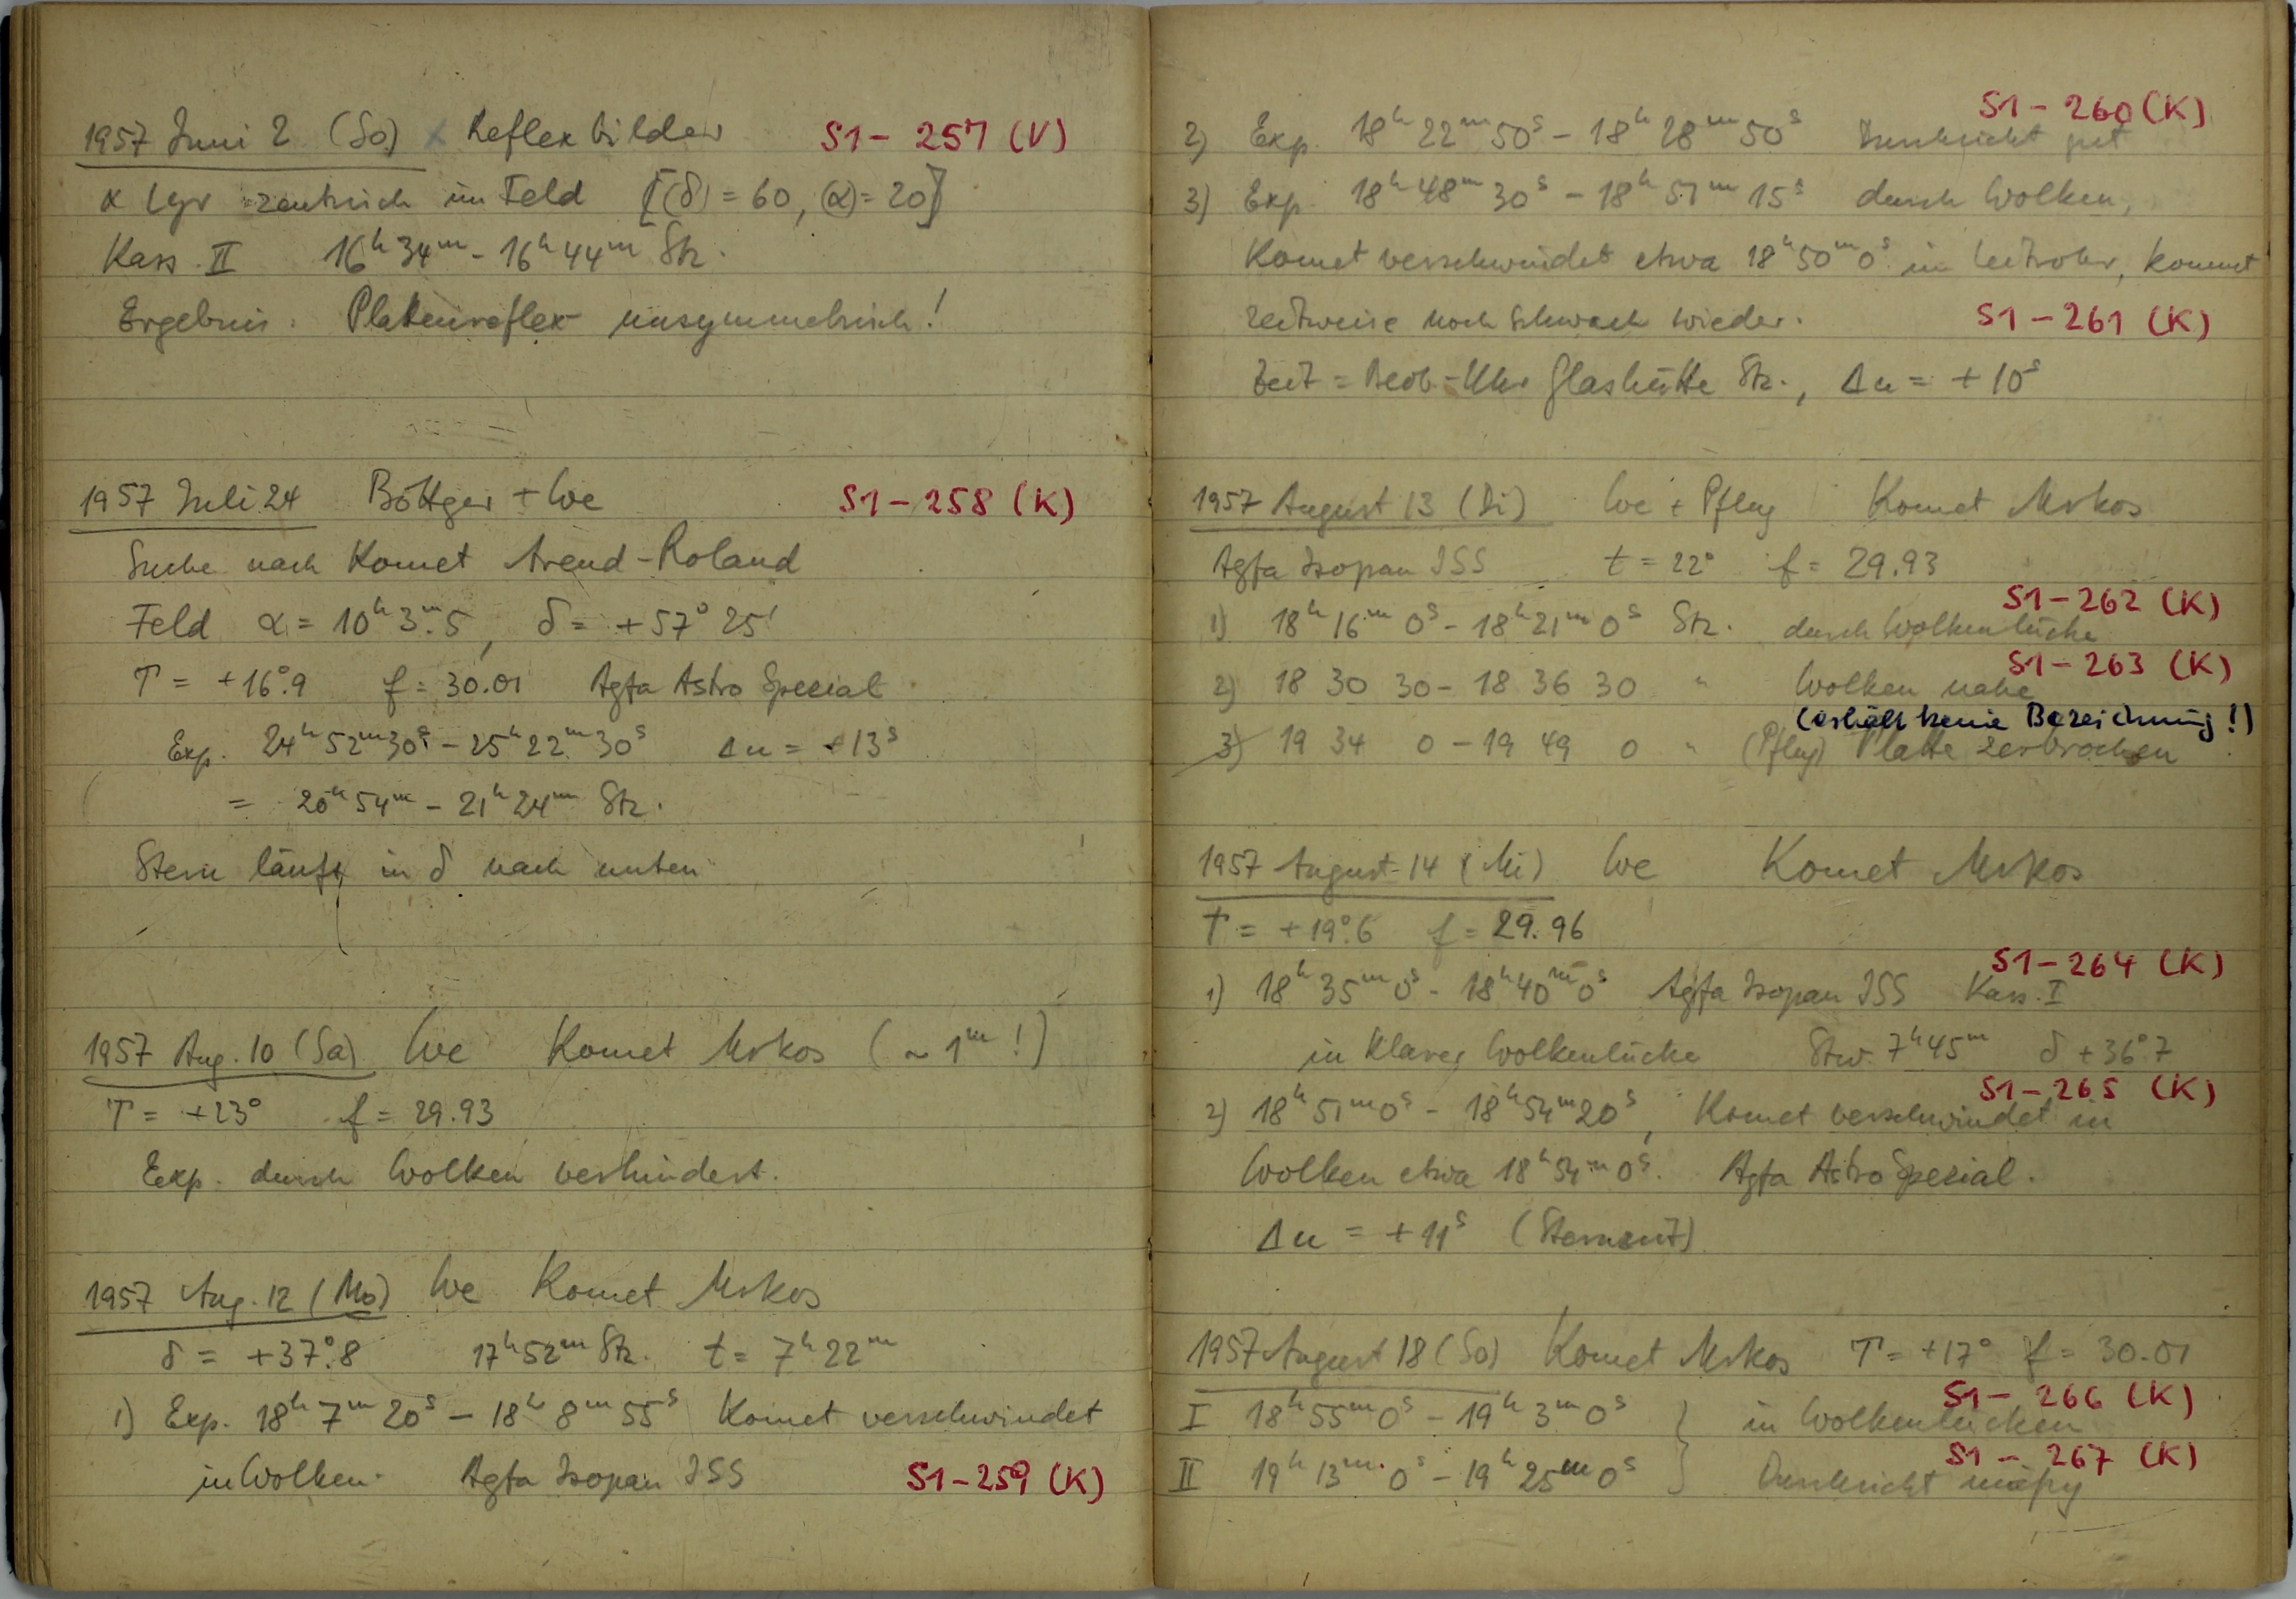 1957 Juni 2 (So) Reflexbilder S1 - 257 (V)
α Lyr zentrisch im Feld [(δ) = 60, (α) = 20]
Kass. II 16h 34m - 16h 44m Stz.
Ergebnis: Plattenreflex unsymmetrisch!
1957 Juli 24 Böttger + We S1 - 258 (K)
Suche nach Komet Arend-Roland
Feld α = 10h 3m.5, δ = +57° 25'
T = +16°.9 f = 30.01 Agfa Astro Spezial
Exp. 24h 52m 30s - 25h 22m 30s Δu = +13s
= 20h 54m - 21h 24m Stz.
Stern läuft in δ nach unten
1957 Aug. 10 (Sa) We Komet Mrkos (~ 1m!)
T = +23° f = 29.93
Exp. durch Wolken verhindert.
1957 Aug. 12 (Mo) We Komet Mrkos
δ = +37°.8 17h 52m Stz. t = 7h 22m
1) Exp. 18h 7m 20s - 18h 8m 55s Komet verschwindet
in Wolken. Agfa Isopan ISS S1 - 259 (K)
S1 - 260 (K)
2) Exp. 18h 22m 50s - 18h 28m 50s Durchsicht gut
3) Exp. 18h 48m 30s - 18h 51m 15s durch Wolken,
Komet verschwindet etwa 18h 50m 0s im Leitrohr, kommt
zeitweise noch schwach wieder. S1 - 261 (K)
Zeit = Beob.-Uhr Glashütte Stz., Δu = +10s
1957 August 13 (Di) We + Pflug Komet Mrkos
Agfa Isopan ISS t = 22° f = 29.93
S1 - 262 (K)
1) 18h 16m 0s - 18h 21m 0s Stz. durch Wolkenlücke
S1 - 263 (K)
2) 18 30 30 - 18 36 30 " Wolken nahe
(erhält keine Bezeichnung!)
3) 19 34 0 - 19 49 0 " (Pflug) Platte zerbrochen
1957 August 14 (Mi) We Komet Mrkos
T = +19°.6 f = 29.96
S1 - 264 (K)
1) 18h 35m 0s - 18h 40m 0s Agfa Isopan ISS Kass. I
in klarer Wolkenlücke Stw. 7h 45m δ +36°.7
S1 - 265 (K)
2) 18h 51m 0s - 18h 54m 20s, Komet verschwindet in
Wolken etwa 18h 54m 0s. Agfa Astro Spezial.
Δu = +11s (Sternzeit)
1957 August 18 (So) Komet Mrkos T = +17° f = 30.01
S1 - 266 (K)
I 18h 55m 0s - 19h 3m 0s } in Wolkenlücken
S1 - 267 (K)
II 19h 13m 0s - 19h 25m 0s } Durchsicht mäßig